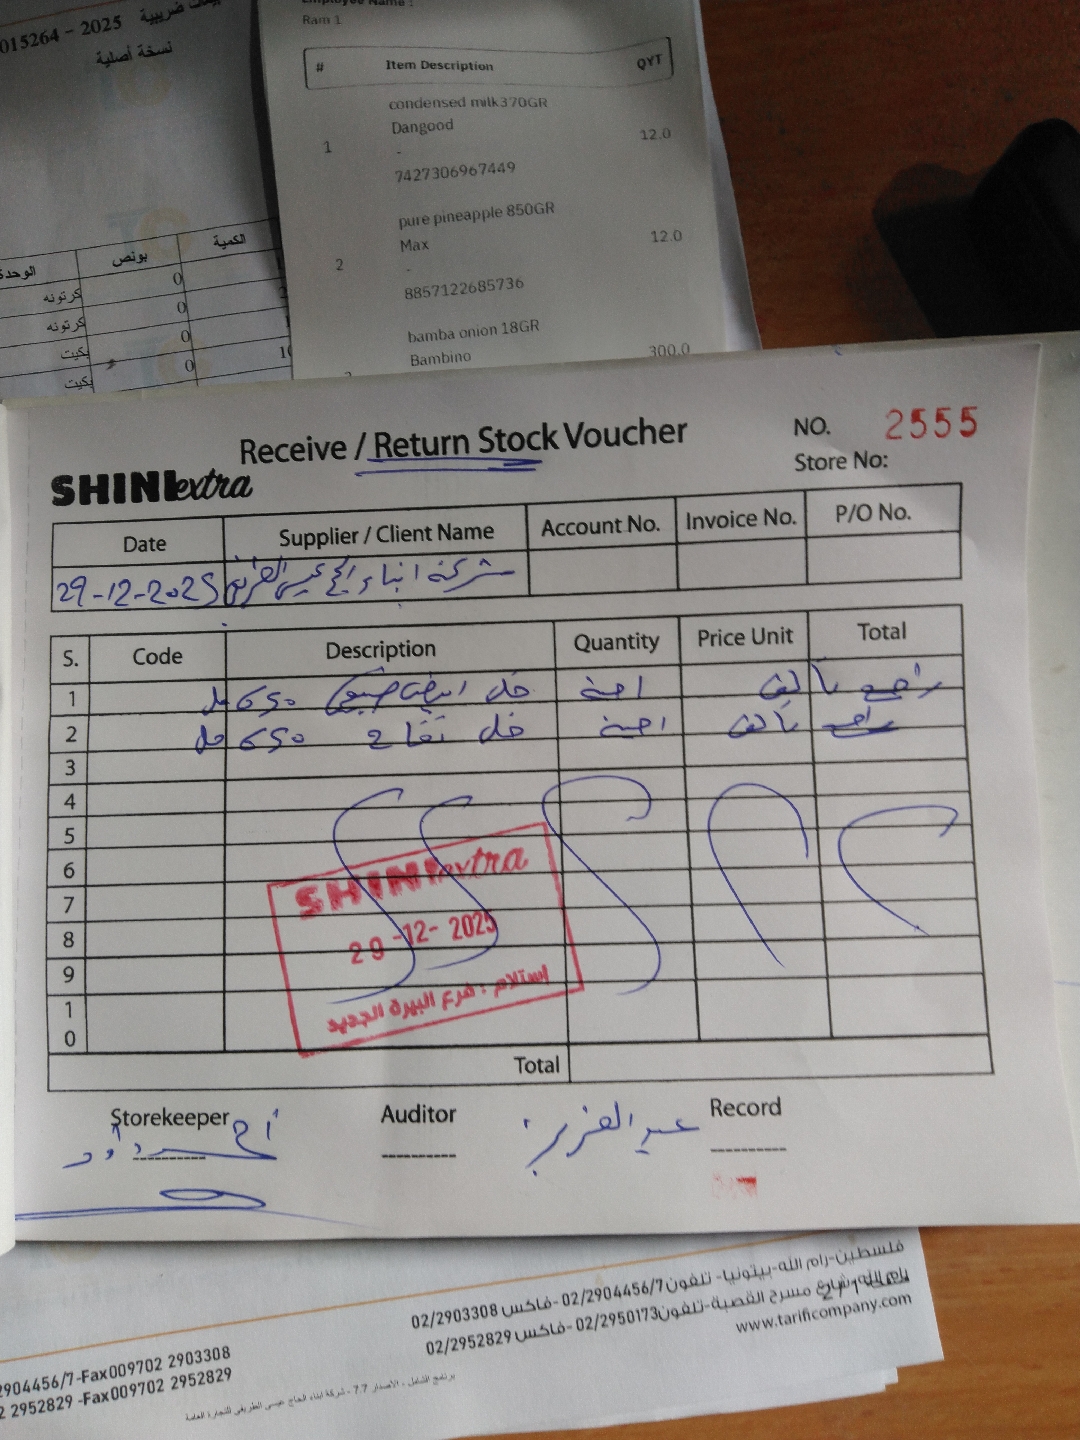 بيعات ضريبية 2025 - 015264
نسخة أصلية
الكمية
بونص
الوحدة
0
كرتونه
0
كرتونه
0
بكيت
0
بكيت
Employee Name :
Ram 1
# Item Description QYT
condensed milk370GR
Dangood
1 - 12.0
7427306967449
pure pineapple 850GR
Max
2 - 12.0
8857122685736
bamba onion 18GR
Bambino 300.0
Receive / Return Stock Voucher
NO. 2555
Store No:
SHINI extra
Date Supplier / Client Name Account No. Invoice No. P/O No.
29-12-2025 شركة ابناء الحج عيسى
S. Code Description Quantity Price Unit Total
1 خل ابيض 650 مل راجع تالف
2 خل تفاح 650 مل راجع تالف
3
4
5
6
7
8
9
10
SHINI extra
29-12-2025
إستلام : فرع البيرة الجديد
Total
Storekeeper Auditor Record
عبد العزيز
فلسطين-رام الله-بيتونيا- تلفون 02/2904456/7 -فاكس 02/2903308
رام الله-شارع مسرح القصبة-تلفون 02/2950173 -فاكس 02/2952829
www.tarificompany.com
2904456/7-Fax009702 2903308
2 2952829 -Fax009702 2952829
برنامج الشامل - الأصدار 7.7 - شركة ابناء الحاج عيسى الطريفي للتجارة العامة